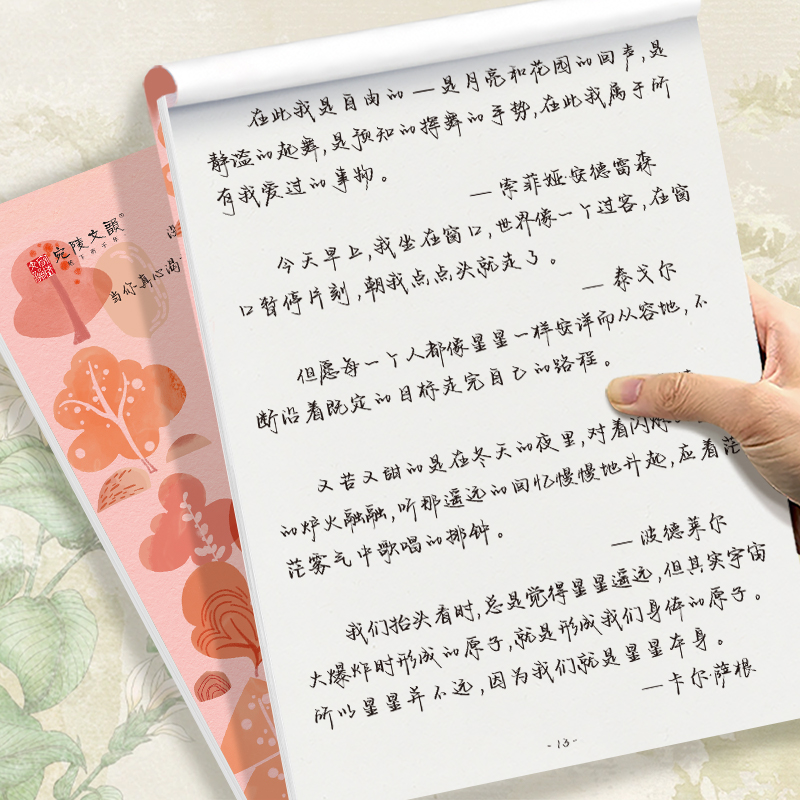 在此我是自由的—是月亮和花园的回声,是
静谧的起舞,是预知的挥舞的手势,在此我属于所
有我爱过的事物。
—索菲娅·安德雷森
今天早上,我坐在窗口,世界像一个过客,在窗
口暂停片刻,朝我点点头就走了。
—泰戈尔
但愿每一个人都像星星一样安详而从容地,不
断沿着既定的目标走完自己的路程。
又苦又甜的是在冬天的夜里,对着闪烁
的炉火融融,听那遥远的回忆慢慢地升起,应着茫
茫雾气中歌唱的排钟。
—波德莱尔
我们抬头看时,总是觉得星星遥远,但其实宇宙
大爆炸时形成的原子,就是形成我们身体的原子。
所以星星并不远,因为我们就是星星本身。
—卡尔·萨根
-13-
宛陵文韵
当你真心渴